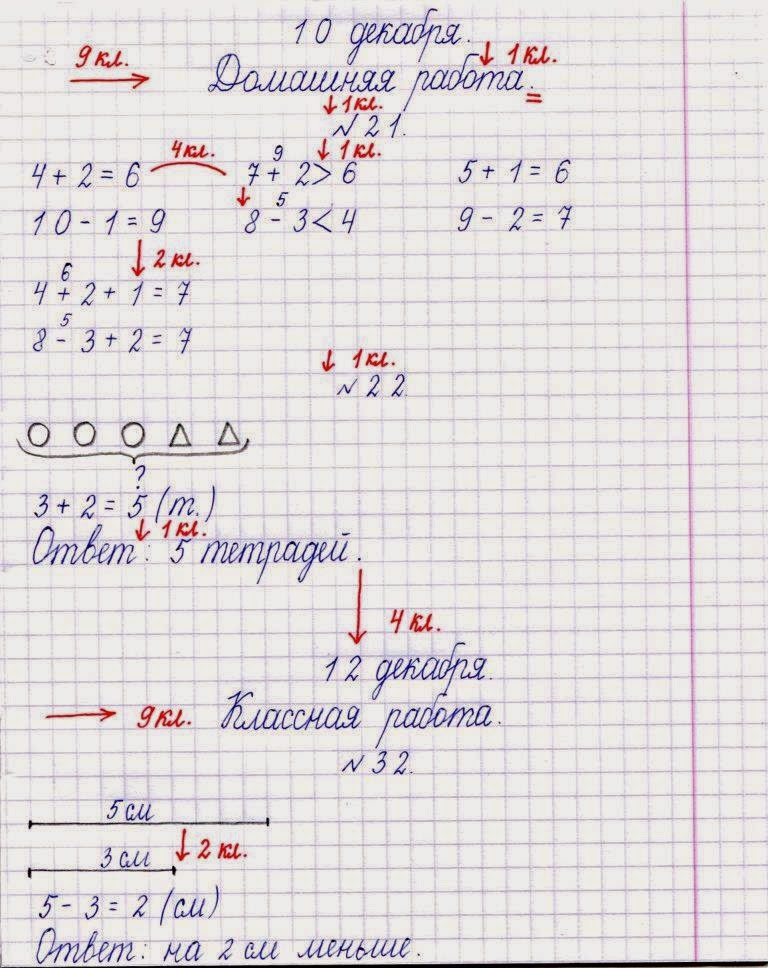 10 декабря.
9 кл. Домашняя работа. 1 кл.
1 кл.
№ 21.
4 кл. 9 1 кл.
4 + 2 = 6 7 + 2 > 6 5 + 1 = 6
5
10 - 1 = 9 8 - 3 < 4 9 - 2 = 7
2 кл.
6
4 + 2 + 1 = 7
5
8 - 3 + 2 = 7
1 кл.
№ 22.
?
3 + 2 = 5 (т.)
1 кл.
Ответ: 5 тетрадей.
4 кл.
12 декабря.
9 кл. Классная работа.
№ 32.
5 см
2 кл.
3 см
5 - 3 = 2 (см)
Ответ: на 2 см меньше.